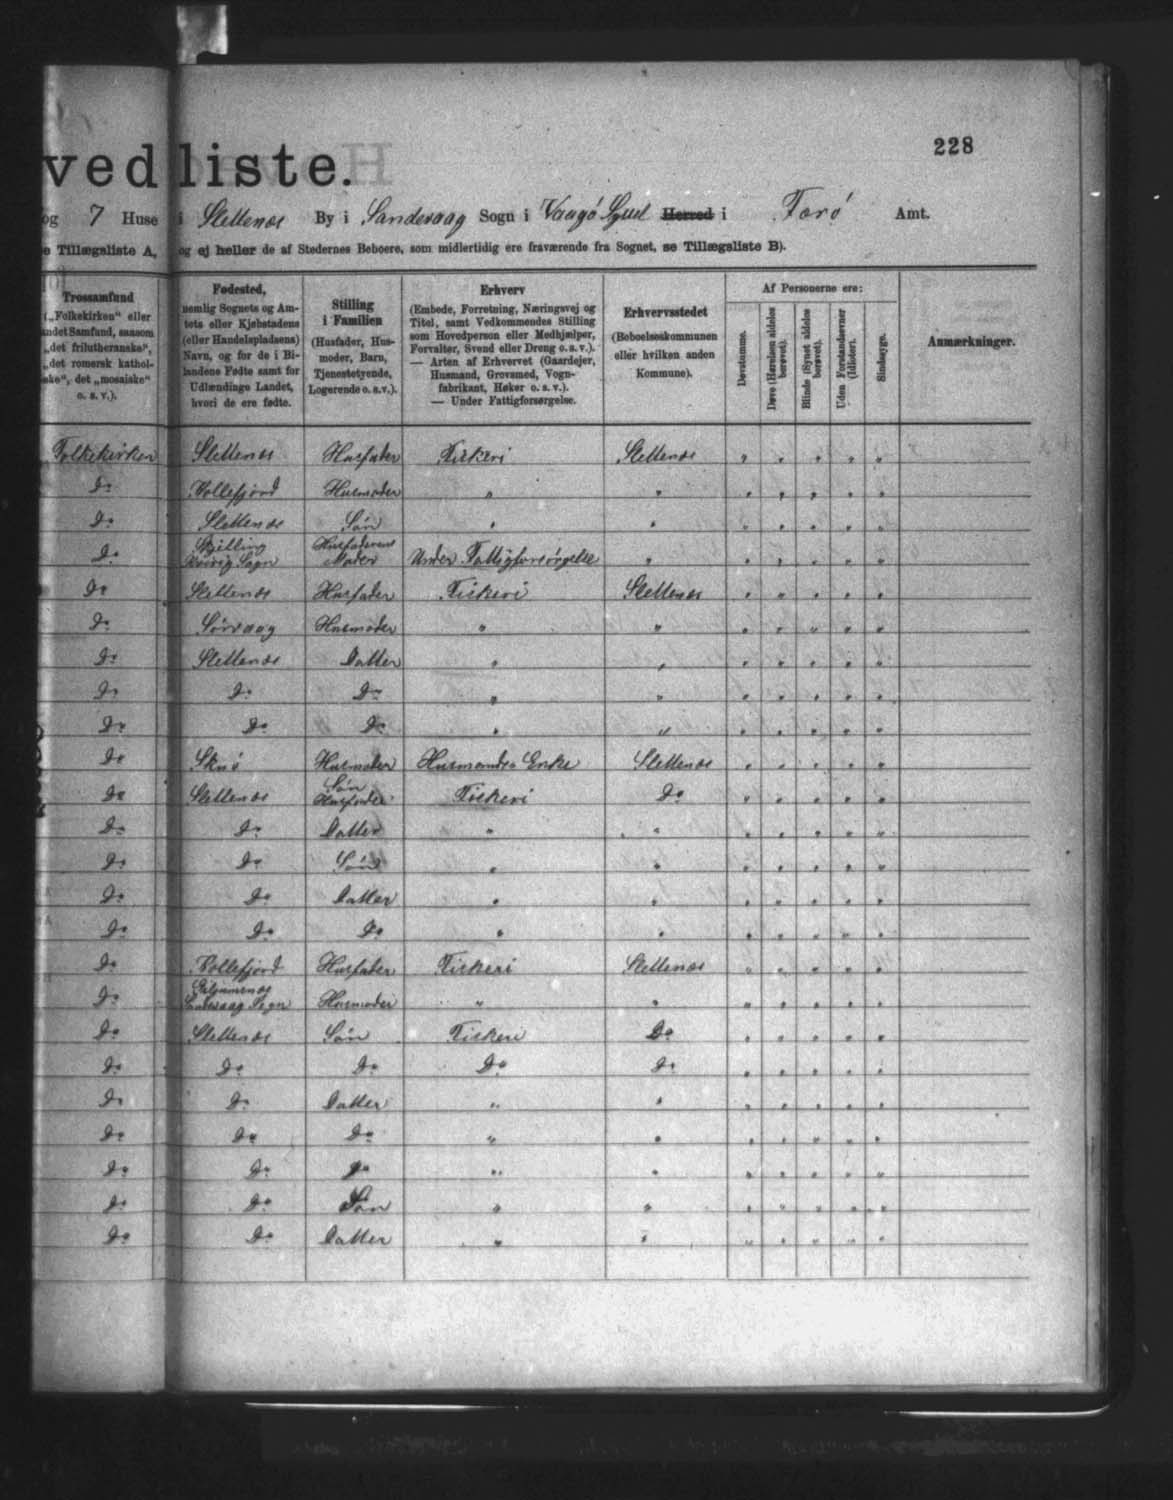 228
vedliste.
og 7 Huse i Slettenæs By i Sandevaag Sogn i Vaagø Syssel Herred i Færø Amt.
e Tillægsliste A, og ej heller de af Stedernes Beboere, som midlertidig ere fraværende fra Sognet, se Tillægsliste B).
Trossamfund
(„Folkekirken" eller
andet Samfund, saasom
„det frilutheranske",
„det romersk kathol-
ske", det „mosaiske"
o. s. v.).
Fødested,
nemlig Sognets og Am-
tets eller Kjøbstadens
(eller Handelspladsens)
Navn, og for de i Bi-
landene Fødte samt for
Udlændinge Landet,
hvori de ere fødte.
Stilling
i Familien
(Husfader, Hus-
moder, Barn,
Tjenestetyende,
Logerende o. s. v.).
Erhverv
(Embede, Forretning, Næringsvej og
Titel, samt Vedkommendes Stilling
som Hovedperson eller Medhjælper,
Forvalter, Svend eller Dreng o. s. v.).
— Arten af Erhvervet (Gaardejer,
Husmand, Grovsmed, Vogn-
fabrikant, Høker o. s. v.).
— Under Fattigforsørgelse.
Erhvervsstedet
(Beboelseskommunen
eller hvilken anden
Kommune).
Af Personerne ere:
Døvstumme.
Døve (Hørelsen aldeles
berøvet).
Blinde (Synet aldeles
berøvet).
Uden Forstandsevner
(Idioter).
Sindssyge.
Anmærkninger.
Folkekirken Slettenæs Husfader Fiskeri Slettenæs " " " " "
Do Kollefjord Husmoder " " " " " " "
Do Slettenæs Søn " " " " " " "
Do Skjelling Kvivig Sogn Husfaderens Moder Under Fattigforsørgelse " " " " " "
Do Slettenæs Husfader Fiskeri Slettenæs " " " " "
Do Sørvaag Husmoder " " " " " " "
Do Slettenæs Datter " " " " " " "
Do Do Do " " " " " " "
Do Do Do " " " " " " "
Do Skuø Husmoder Husmands Enke Slettenæs " " " " "
Do Slettenæs Søn Husfader Fiskeri Do " " " " "
Do Do Datter " " " " " " "
Do Do Søn " " " " " " "
Do Do Datter " " " " " " "
Do Do Do " " " " " " "
Do Kollefjord Husfader Fiskeri Slettenæs " " " " "
Do Sogn Husmoder " " " " " " "
Do Slettenæs Søn Fiskeri Do " " " " "
Do Do Do Do Do " " " " "
Do Do Datter " " " " " " "
Do Do Do " " " " " " "
Do Do Do " " " " " " "
Do Do Søn " " " " " " "
Do Do Datter " " " " " " "